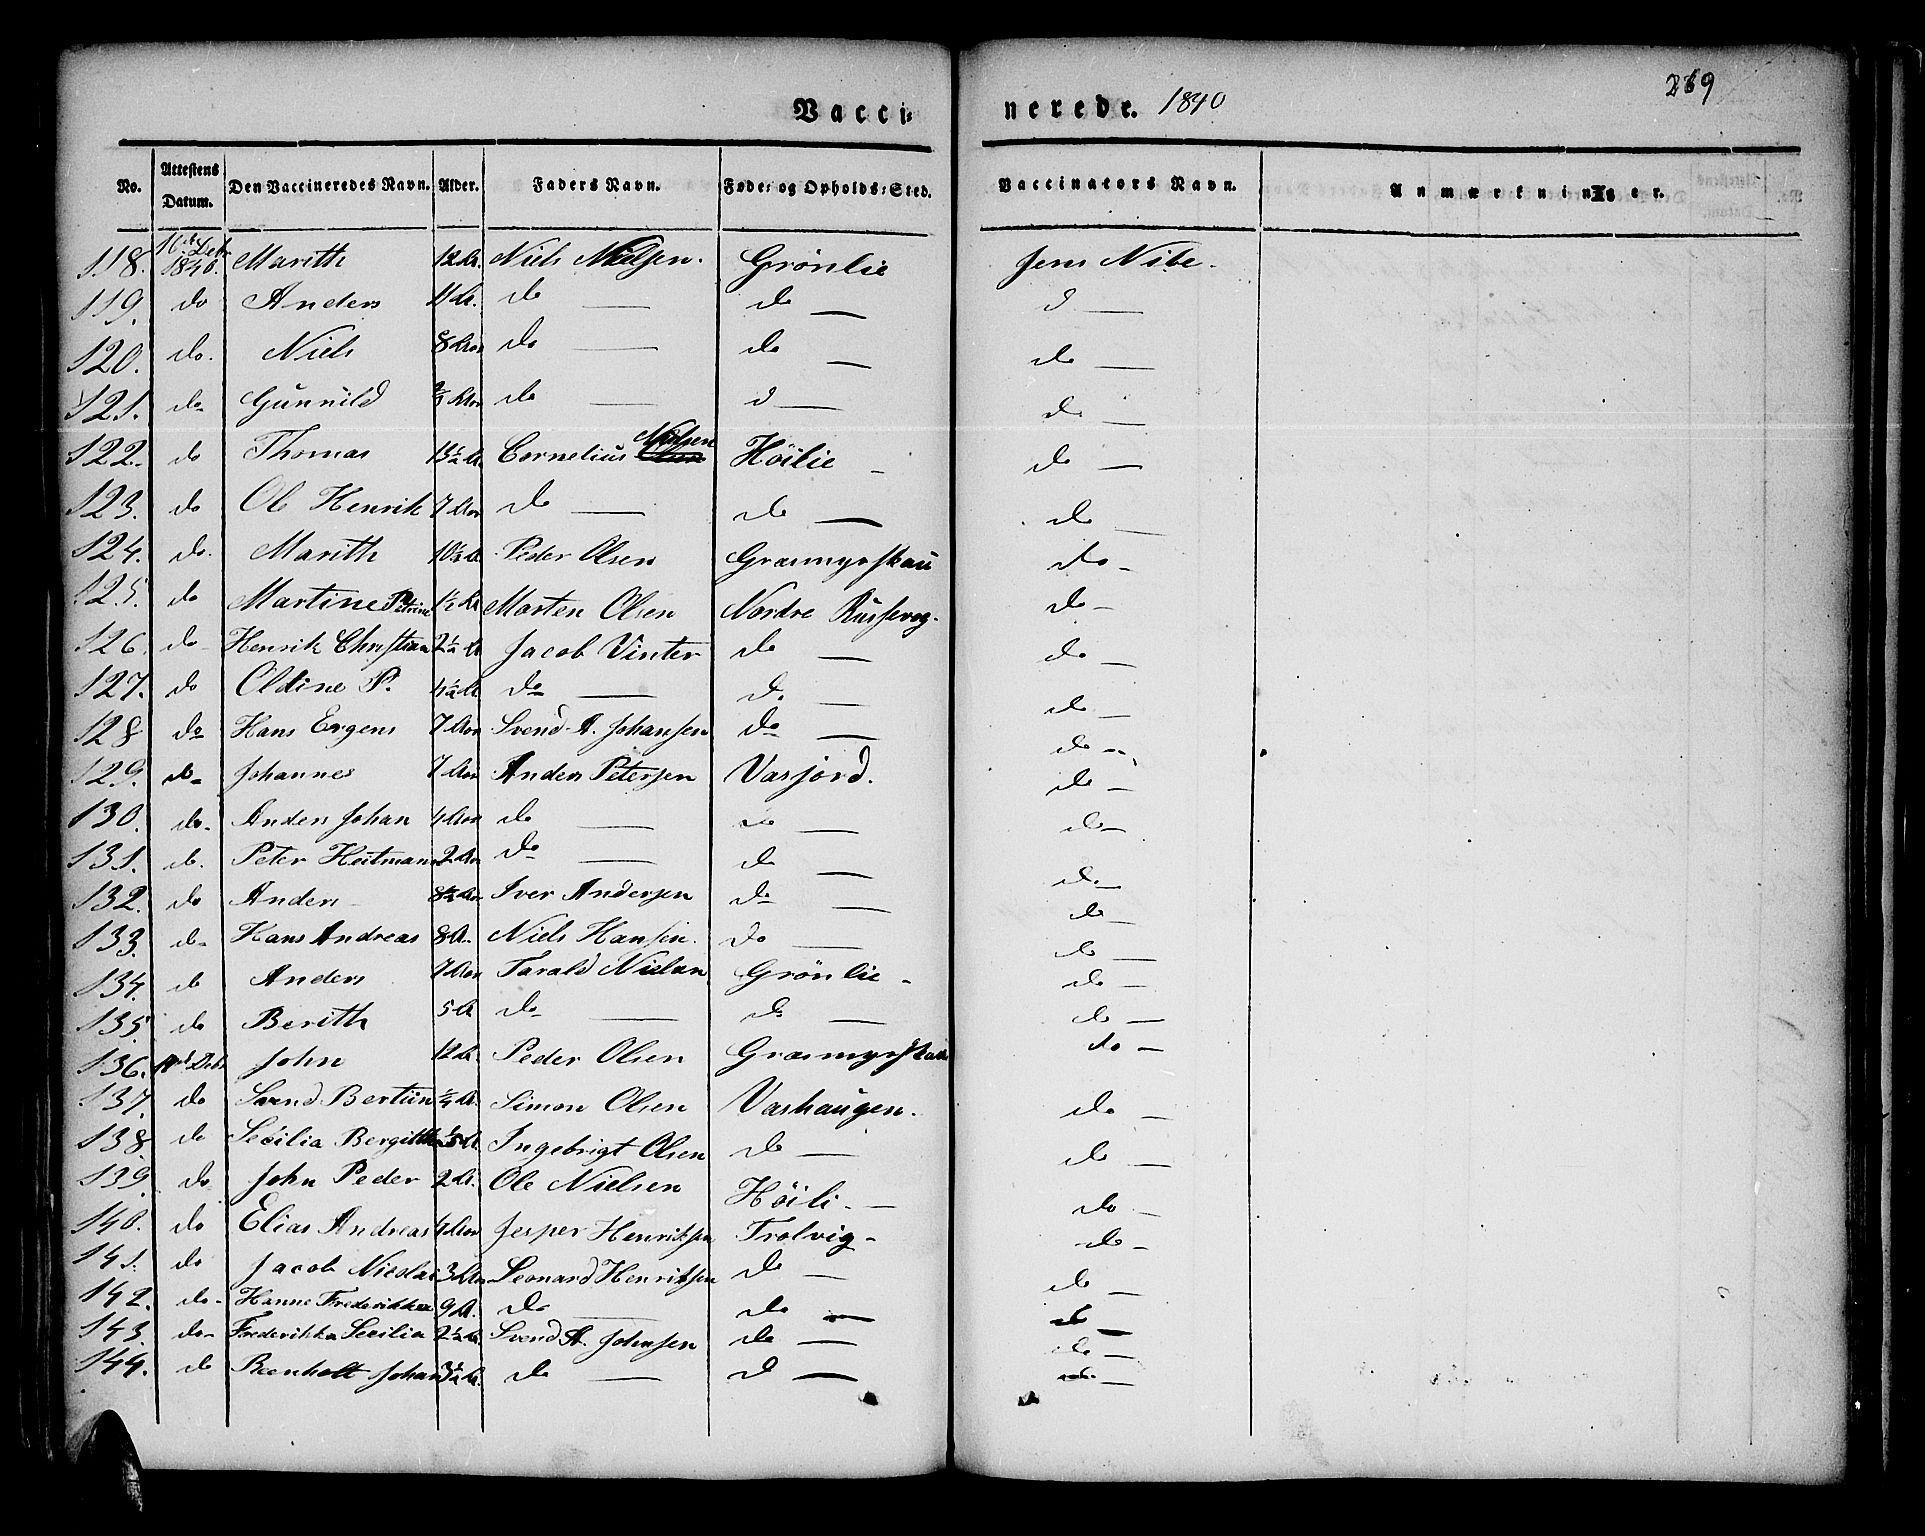 269
Vacci=
nerede. 1840
No. Attestens Datum. Den Vaccineredes Navn. Alder. Faders Navn. Føde: og Opholds: Sted. Vaccinators Navn. Anmærkninger.
118. 1840. Marith 12 A. Niels Nielsen. Grönlie Jens Nibe.
119. do Anders 11 A. do — do — d —
120. do. Niels 8 Aar do — do — do —
121. do Gunnild Aar do — d — do —
122. do Thomas 13½ A. Cornelius Nielsen Höilie — do —
123. do Ol Henrik 7 Aar do — do — do —
124. do. Marith 10½ A Peder Olsen Græsmyrskau do -
125. do Martine Petrine 1½ A Morten Olsen Nordre Russevog. do -
126. do Henrik Christian 2½ A Jacob Vinter do — do —
127. do Oldine P. 4½ A do — do — do —
128 do Hans Ergens 7 Aar Svend A. Johansen do — do -
129. do Johannes 7 Aar Anders Petersen Vasjord. do -
130. do. Anders Johan 4 Aar do — do — do —
131. do. Peter Heitmann 2 Aar do — do — do —
132. do Anders 8½ Aar Iver Andersen do — do —
133. do Hans Andreas 8 A. Niels Hansen. do — do —
134. do Anders 7 Aar Tarald Nielsen Grönlie - do —
135. do Berith 5 A do — do — do —
136. Debr John 12 A. Peder Olsen Græsmyrskau do -
137. do Svend Bertin A. Simon Olsen Vashaugen. do —
138. do Secilia Bergitth A Ingebrigt Olsen do — do —
139. do John Peder 2 A. Ole Nielsen Höili. — do —
140. do Elias Andreas 4 Aar Jesper Henriksen Trolvig - do -
141. do Jacob Nicolai 3 Aar Leonard Henriksen do — do —
142. do - Hanne Frederikka 9 A. do — do — do —
143. do - Frederikka Secilia 2½ A Svend A. Johnsen do — do —
144. do Beenholt Johan 3½ A. do — d — do —